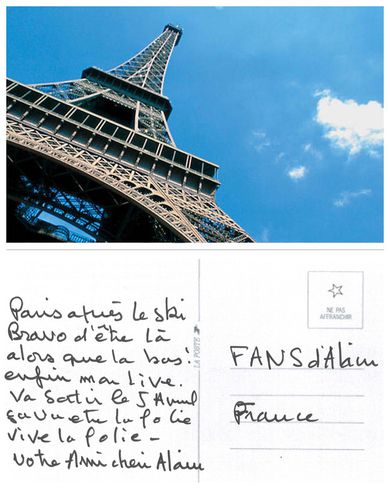 Paris après le ski
Bravo d'être là
alors que la bas
enfin mon live.
Va sortir le 5 Avril
ça va etre la folie
vive la folie –
votre Ami cheri Alain
LA POSTE
NE PAS
AFFRANCHIR
FANS d'Alain
France